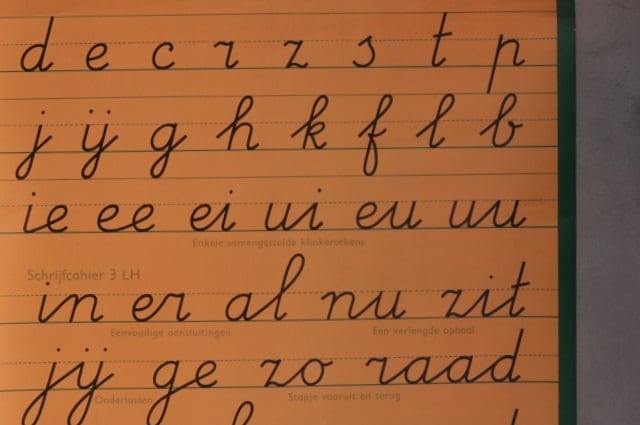 d e c r z s t p
j ij g h k f l b
ie ee ei ui eu uu
Enkele samengestelde klinkertekens
Schrijfcahier 3 LH
in er al nu zit
Eenvoudige aansluitingen Een verlengde ophaal
jij ge zo raad
Onderlussen Stapje vooruit en terug